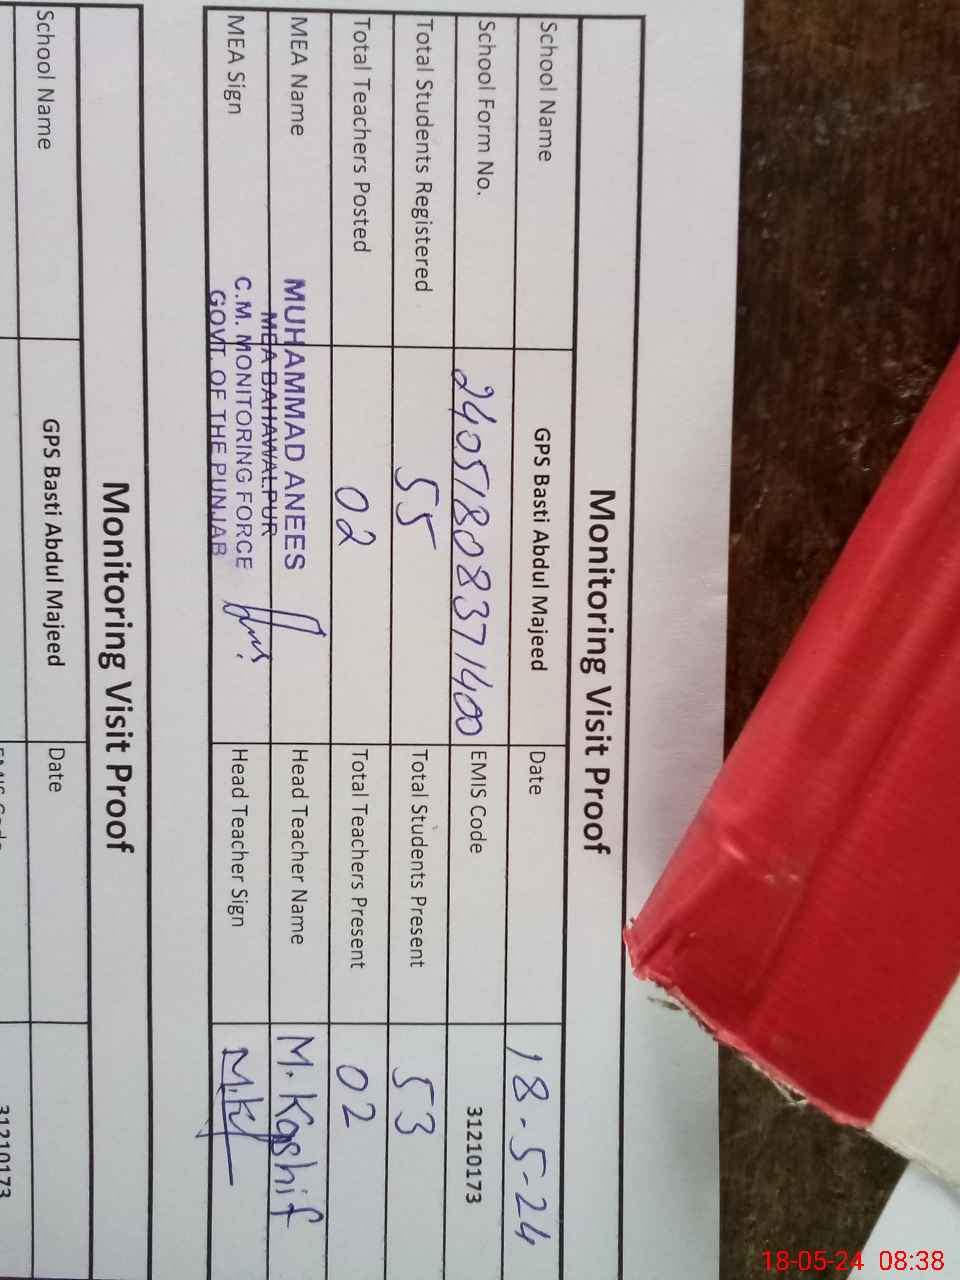 Monitoring Visit Proof
School Name GPS Basti Abdul Majeed Date 18-5-24
School Form No. 24051808371400 EMIS Code 31210173
Total Students Registered 55 Total Students Present 53
Total Teachers Posted 02 Total Teachers Present 02
MEA Name MUHAMMAD ANEES Head Teacher Name M. Kashif
MEA BAHAWALPUR
MEA Sign C.M. MONITORING FORCE Head Teacher Sign
GOVT. OF THE PUNJAB
Monitoring Visit Proof
School Name GPS Basti Abdul Majeed Date
31210173
18-05-24 08:38